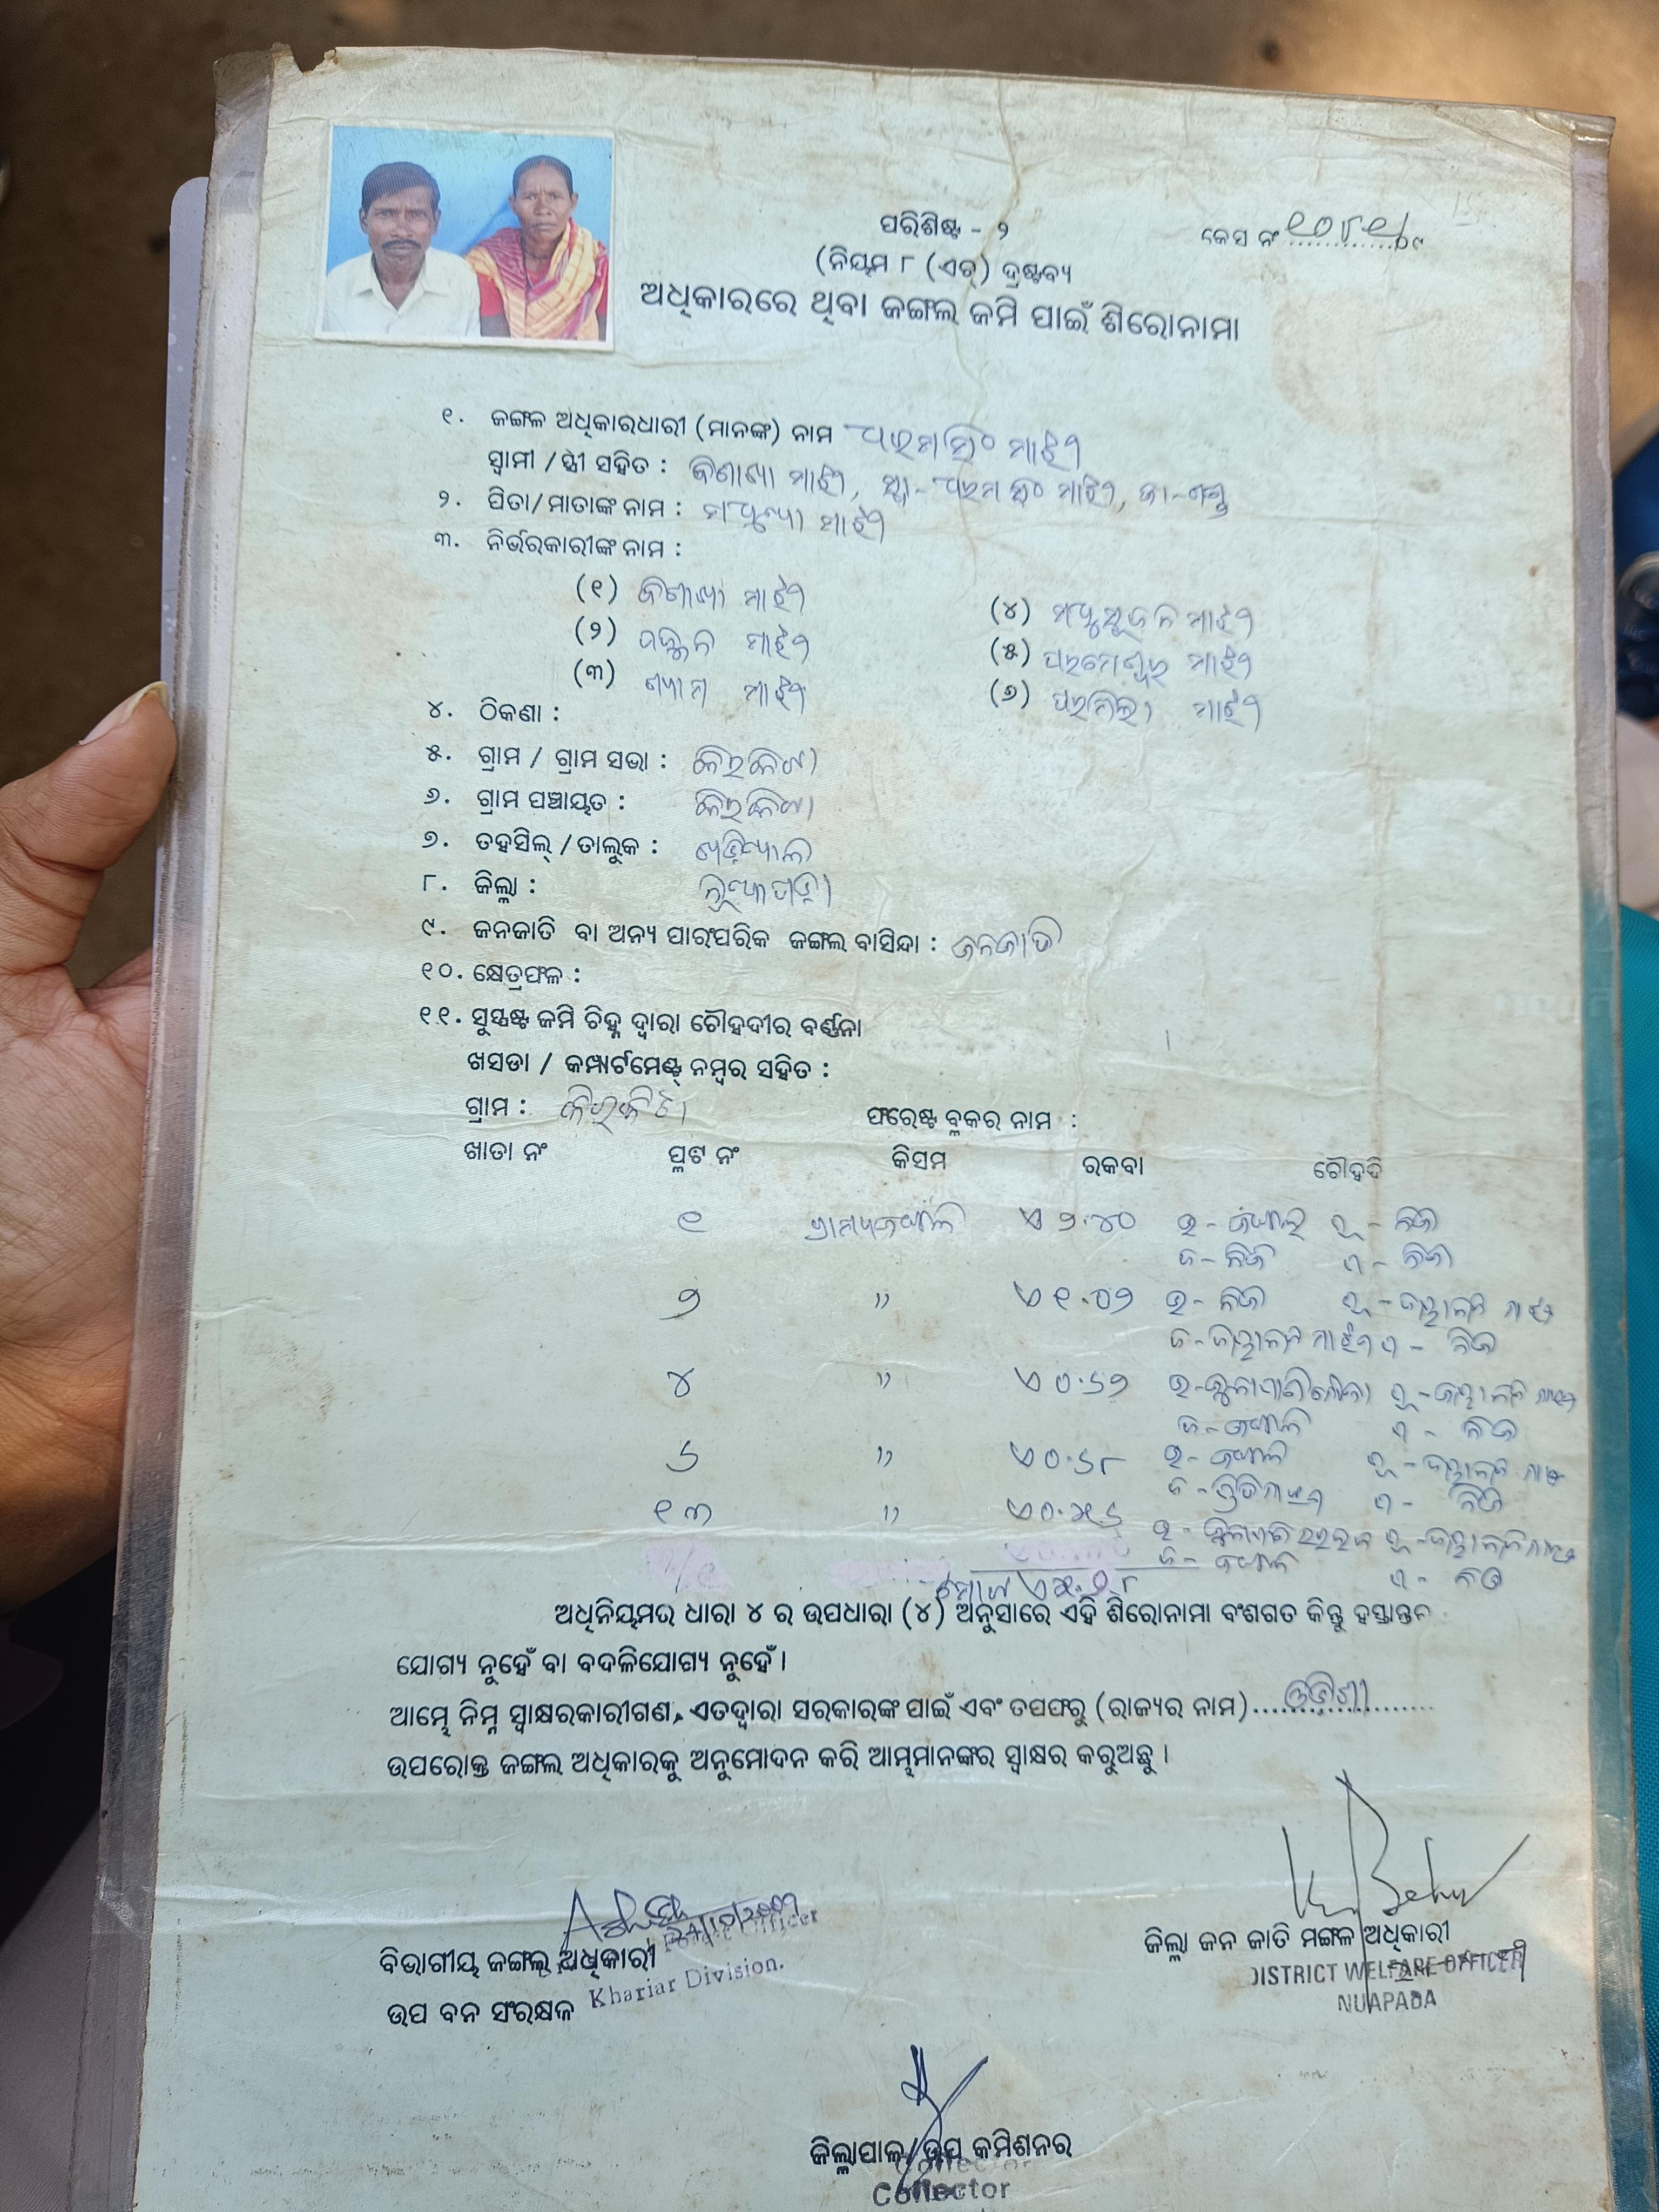 ପରିଶିଷ୍ଟ - ୨
କେସ ନଂ ୧୦୮୧/୦୯
(ନିୟମ ୮ (ଏଚ୍) ଦ୍ରଷ୍ଟବ୍ୟ
ଅଧିକାରରେ ଥିବା ଜଙ୍ଗଲ ଜମି ପାଇଁ ଶିରୋନାମା
୧. ଜଙ୍ଗଲ ଅଧିକାରଧାରୀ (ମାନଙ୍କ) ନାମ ଧରମସିଂ ମାଝୀ
ସ୍ୱାମୀ / ସ୍ତ୍ରୀ ସହିତ : ମାଝୀ, ସ୍ୱା- ଧରମସିଂ ମାଝୀ, ଜା-
୨. ପିତା/ମାତାଙ୍କ ନାମ : ମାଝୀ
୩. ନିର୍ଭରକାରୀଙ୍କ ନାମ :
(୧) ମାଝୀ (୪) ମଧୁସୂଦନ ମାଝୀ
(୨) ମାଝୀ (୫) ପରମେଶ୍ୱର ମାଝୀ
(୩) ଶ୍ୟାମ ମାଝୀ (୬) ପରମିଲା ମାଝୀ
୪. ଠିକଣା :
୫. ଗ୍ରାମ / ଗ୍ରାମ ସଭା :
୬. ଗ୍ରାମ ପଞ୍ଚାୟତ :
୭. ତହସିଲ୍ / ତାଲୁକ : ଖଡ଼ିଆଳ
୮. ଜିଲ୍ଲା : ନୂଆପଡ଼ା
୯. ଜନଜାତି ବା ଅନ୍ୟ ପାରଂପରିକ ଜଙ୍ଗଲ ବାସିନ୍ଦା : ଜନଜାତି
୧୦. କ୍ଷେତ୍ରଫଳ :
୧୧. ସୁସ୍ପଷ୍ଟ ଜମି ଚିହ୍ନ ଦ୍ୱାରା ଚୌହଦୀର ବର୍ଣ୍ଣନା
ଖସଡା / କମ୍ପାର୍ଟମେଣ୍ଟ୍ ନମ୍ବର ସହିତ :
ଗ୍ରାମ : ଫରେଷ୍ଟ ବ୍ଲକର ନାମ :
ଖାତା ନଂ ପ୍ଳଟ ନଂ କିସମ ରକବା ଚୌହଦି
୧ ଗ୍ରାମ୍ୟଜଙ୍ଗଲ ଏ ୨.୪୦ ଉ - ଜଙ୍ଗଲ ପୂ - ନିଜ
ଦ - ନିଜ ପ - ନିଜ
୨ " ଏ ୧.୦୨ ଉ - ନିଜ ପୂ -
ଦ - ମାଝୀ ପ - ନିଜ
୪ " ଏ ୦.୬୨ ଉ - ପୂ -
ଦ - ଜଙ୍ଗଲ ପ - ନିଜ
୬ " ଏ ୦.୬୮ ଉ - ଜଙ୍ଗଲ ପୂ -
ଦ - ପ - ନିଜ
୧୩ " ଏ ୦.୫୬ ଉ - ପୂ -
ଦ - ଜଙ୍ଗଲ ପ - ନିଜ
ମୋଟ ଏ ୫.୨୮
ଅଧିନିୟମର ଧାରା ୪ ର ଉପଧାରା (୪) ଅନୁସାରେ ଏହି ଶିରୋନାମା ବଂଶଗତ କିନ୍ତୁ ହସ୍ତାନ୍ତର
ଯୋଗ୍ୟ ନୁହେଁ ବା ବଦଳିଯୋଗ୍ୟ ନୁହେଁ ।
ଆମ୍ଭେ ନିମ୍ନ ସ୍ୱାକ୍ଷରକାରୀଗଣ, ଏତଦ୍ୱାରା ସରକାରଙ୍କ ପାଇଁ ଏବଂ ତପଫରୁ (ରାଜ୍ୟର ନାମ) ଓଡ଼ିଶା
ଉପରୋକ୍ତ ଜଙ୍ଗଲ ଅଧିକାରକୁ ଅନୁମୋଦନ କରି ଆମ୍ଭମାନଙ୍କର ସ୍ୱାକ୍ଷର କରୁଅଛୁ ।
ବିଭାଗୀୟ ଜଙ୍ଗଲ ଅଧିକାରୀ Officer
ଉପ ବନ ସଂରକ୍ଷକ Khariar Division.
ଜିଲ୍ଲା ଜନ ଜାତି ମଙ୍ଗଳ ଅଧିକାରୀ
DISTRICT WELFARE OFFICER
NUAPADA
ଜିଲ୍ଲାପାଳ/ଉପ କମିଶନର
Collector
Collector